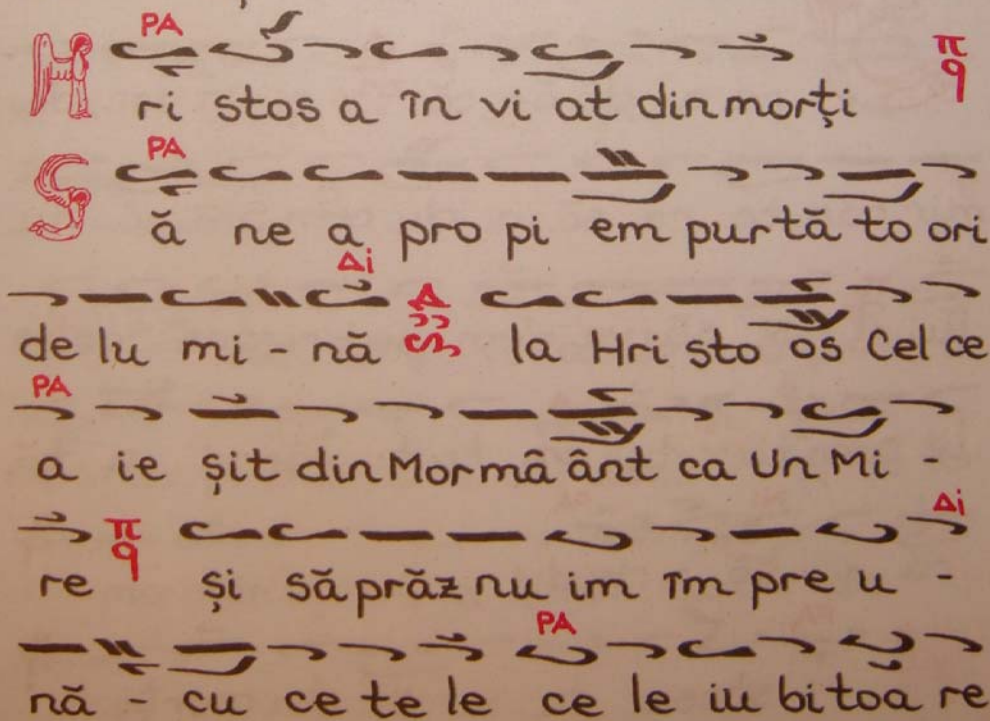 PA π q
Hri stos a în vi at din morți
PA
Să ne a pro pi em pur tă to ori
Δi
de lu mi - nă Δ la Hri sto os Cel ce
PA
a ie șit din Mor mâ ânt ca Un Mi -
π q Δi
re și să prăz nu im îm pre u -
PA
nă - cu ce te le ce le iu bi toa re